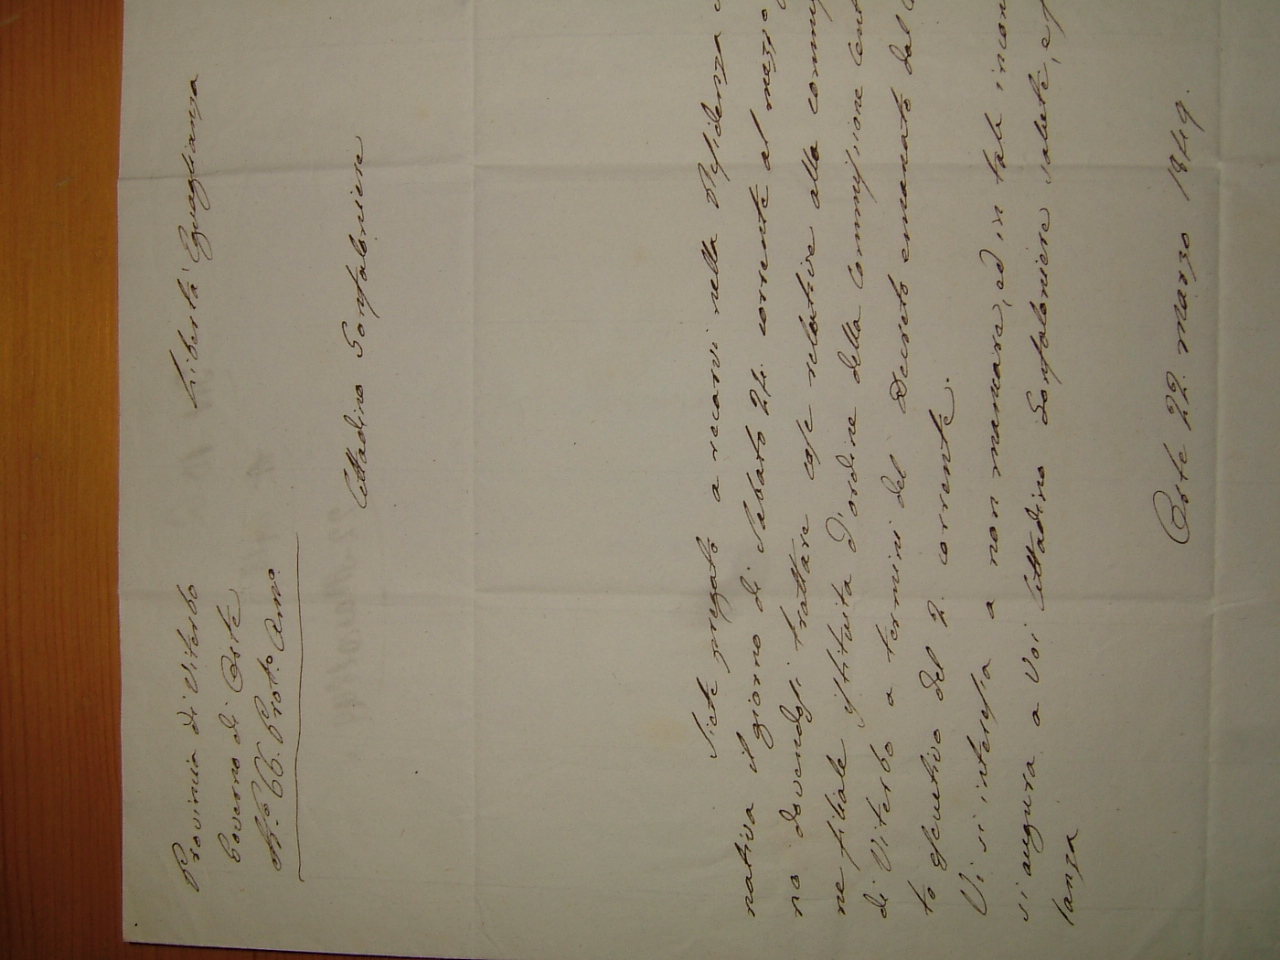 Provincia di Viterbo
Governo di Orte
N.° 66. Prot. Arm.
Libertà Eguaglianza
Cittadino Gonfaloniere
Siete pregato a recarvi nella Residenza
nativa il giorno di Sabato 24. corrente al mezzo
no dovendosi trattare cose relative alla commis
ne filiale istituita d'ordine della Commissione cent
di Viterbo a termini del Decreto emanato dal C
to esecutivo del 2. corrente.
Vi si interessa a non mancare, ed in tale incon
si augura a Voi Cittadino Gonfaloniere salute, e f
lanza
Orte 22. Marzo 1849.